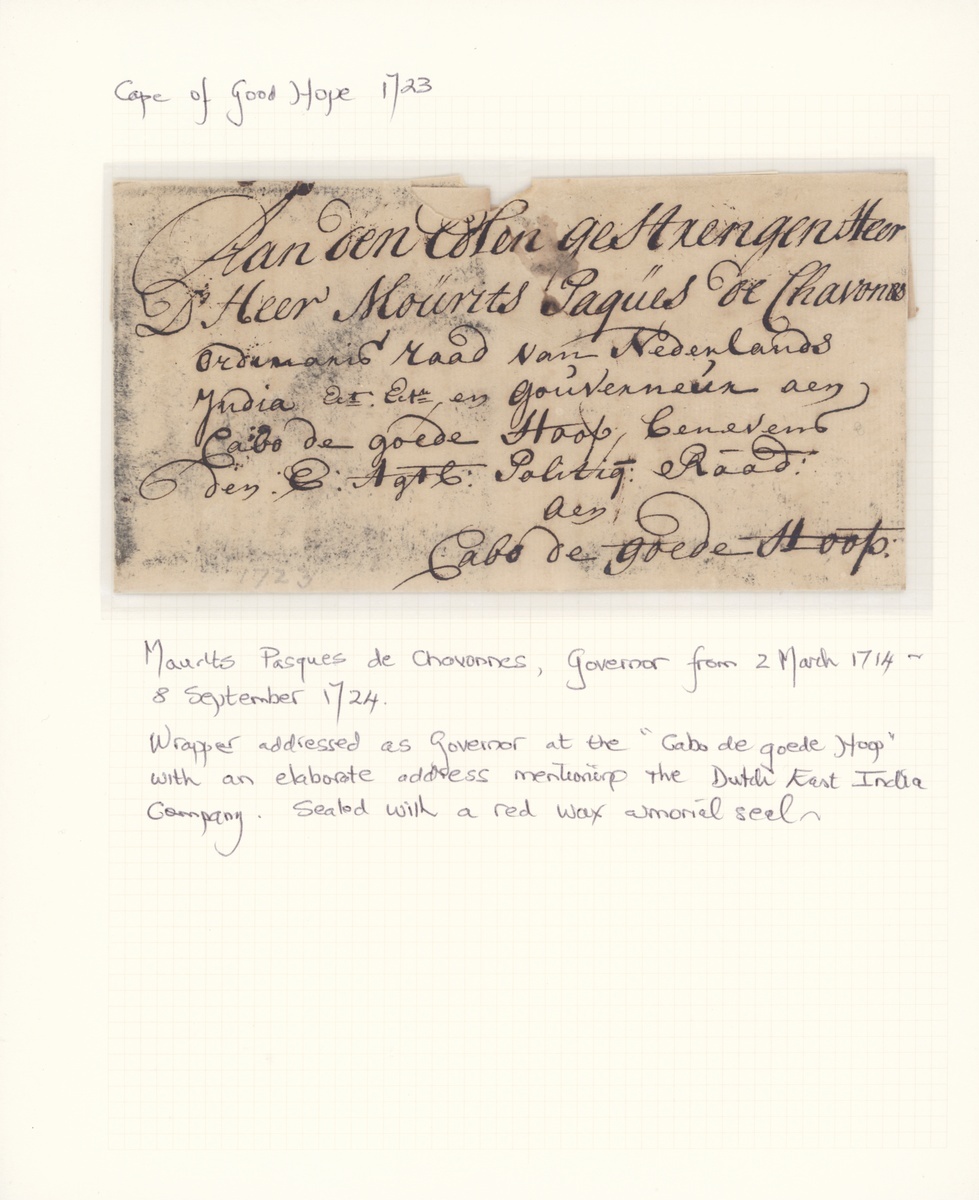 Cape of Good Hope 1723
Aan den Edlen gestrengen Heer
Dr Heer Moürits Paqües de Chavonnes
Ordinaris raad van Nederlands
India Ect. Ectra en Gouverneür aen
Cabo de goede Hoop, benevens
den E: Agtb: Politiq: Raad:
aen
Cabo de goede Hoop:
1723
Maurits Pasques de Chavonnes, Governor from 2 March 1714 ~
8 September 1724.
Wrapper addressed as Governor at the "Cabo de goede Hoop"
with an elaborate address mentioning the Dutch East India
Company. Sealed with a red wax armorial seal